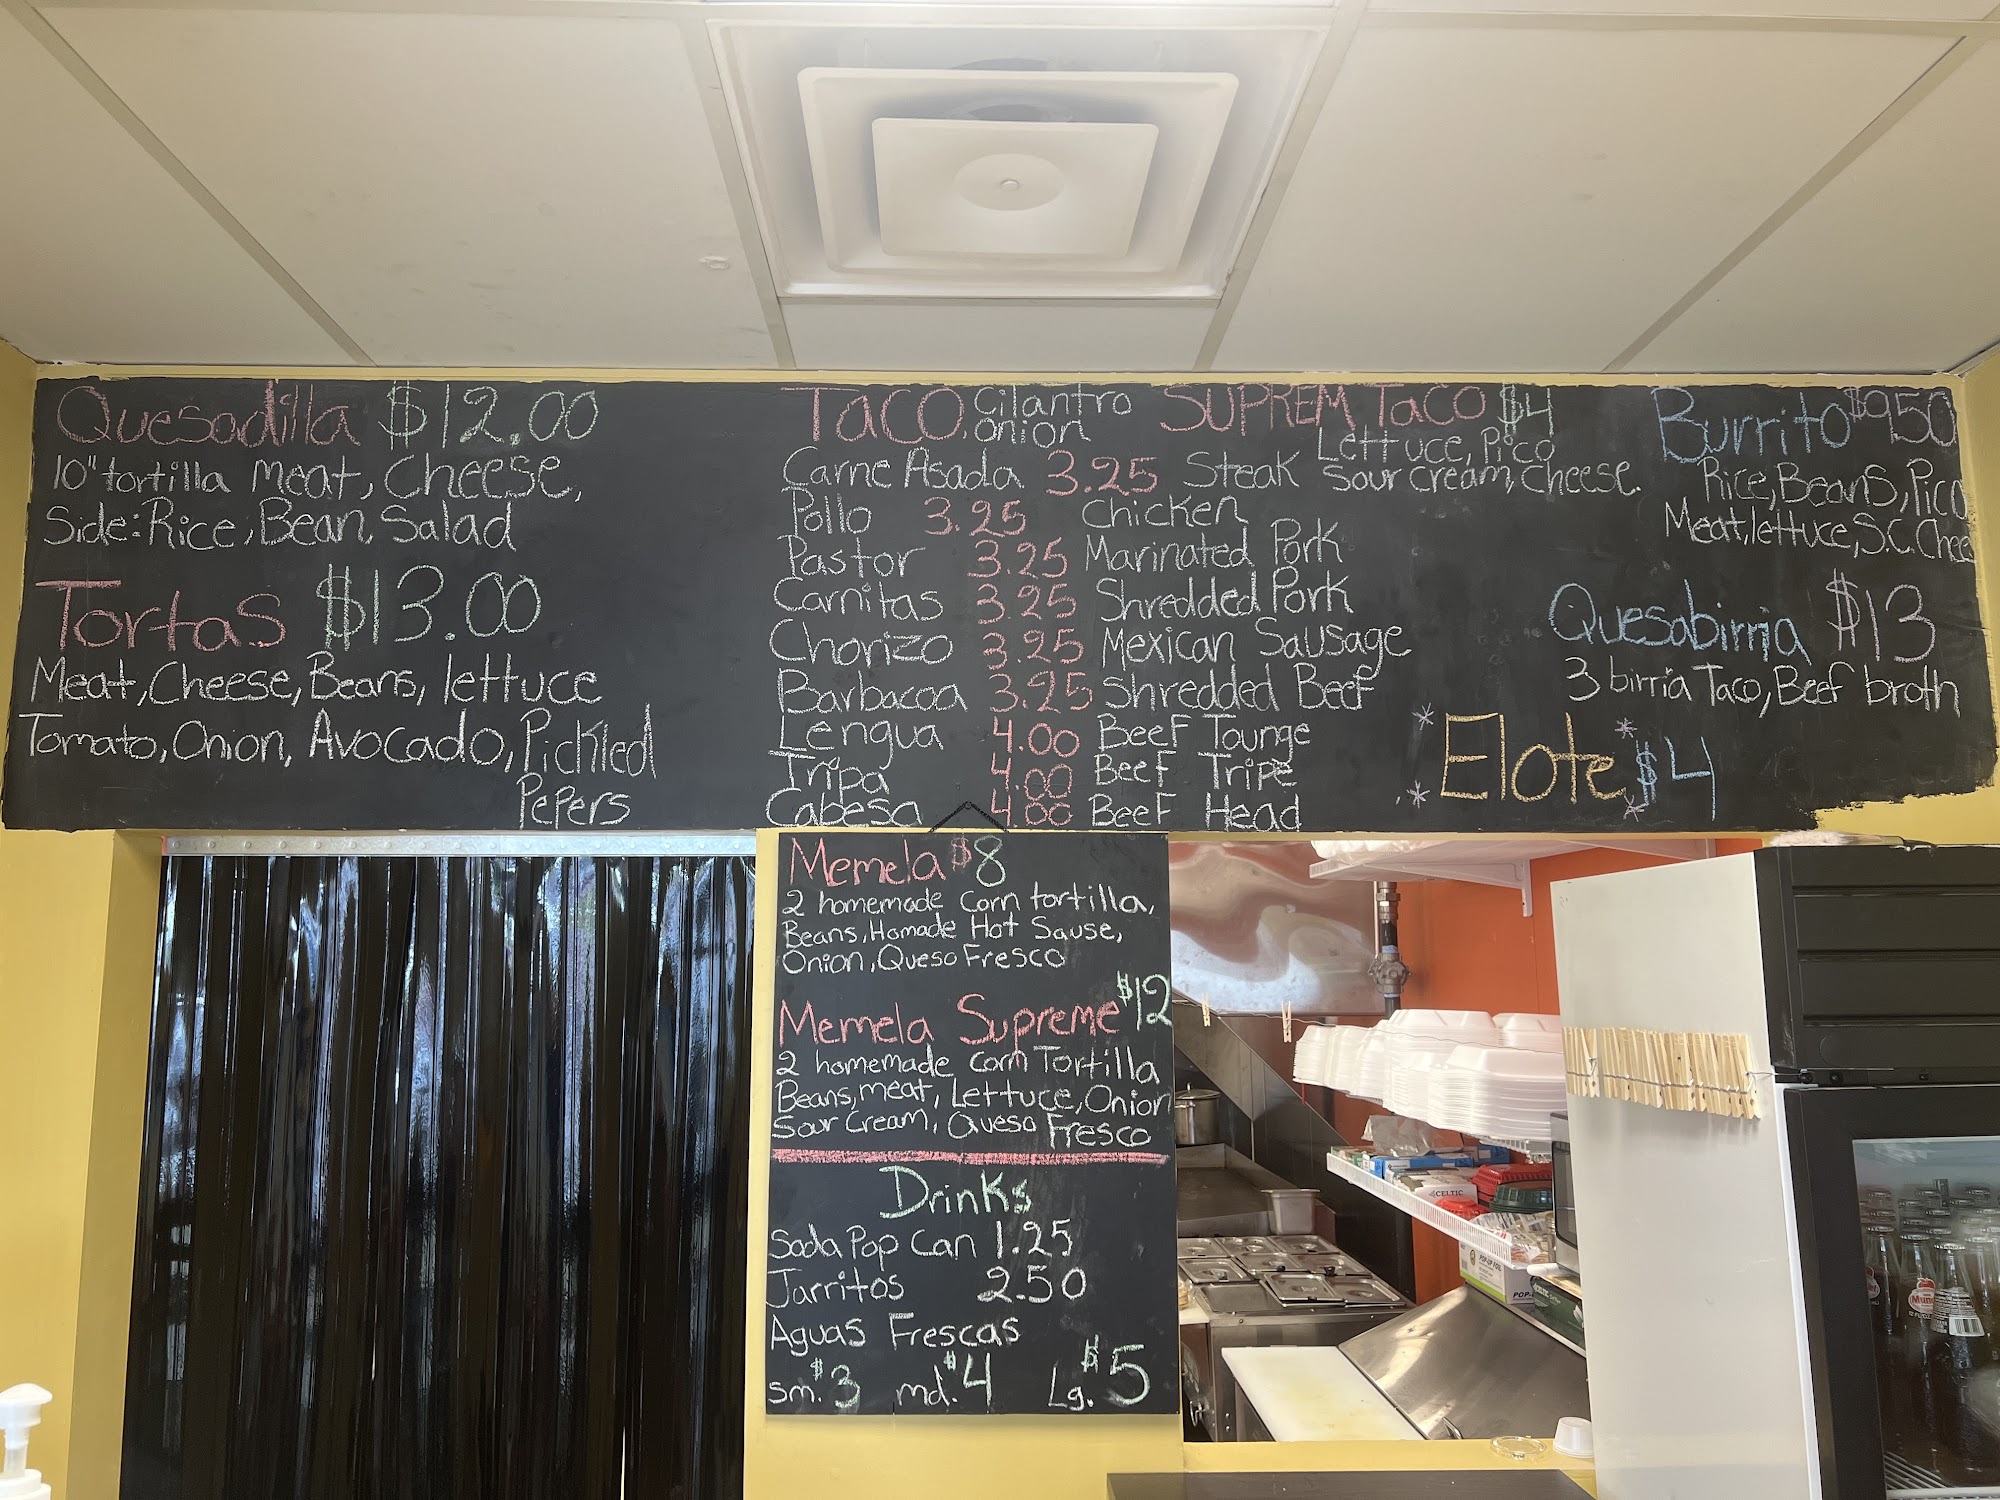 Quesadilla $12.00
10" tortilla Meat, Cheese,
Side: Rice, Bean, Salad
Tortas $13.00
Meat, Cheese, Beans, lettuce
Tomato, Onion, Avocado, Pickled
Pepers
TACO Cilantro
onion
Carne Asada 3.25 Steak
Pollo 3.25 Chicken
Pastor 3.25 Marinated Pork
Carnitas 3.25 Shredded Pork
Chorizo 3.25 Mexican Sausage
Barbacoa 3.25 Shredded Beef
Lengua 4.00 Beef Tounge
Tripa 4.00 Beef Tripe
Cabesa 4.00 Beef Head
SUPREM Taco $4
Lettuce, Pico
Sour cream, Cheese.
Burrito $9.50
Rice, Beans, Pico
Meat, lettuce, S.C. Chees
Quesabirria $13
3 birria Taco, Beef broth
*Elote* $4
Memela $8
2 homemade Corn tortilla,
Beans, Homade Hot Sause,
Onion, Queso Fresco
Memela Supreme $12
2 homemade Corn Tortilla
Beans, meat, Lettuce, Onion
Sour Cream, Queso Fresco
Drinks
Soda Pop Can 1.25
Jarritos 2.50
Aguas Frescas
sm. $3 md. $4 Lg. $5
CELTIC